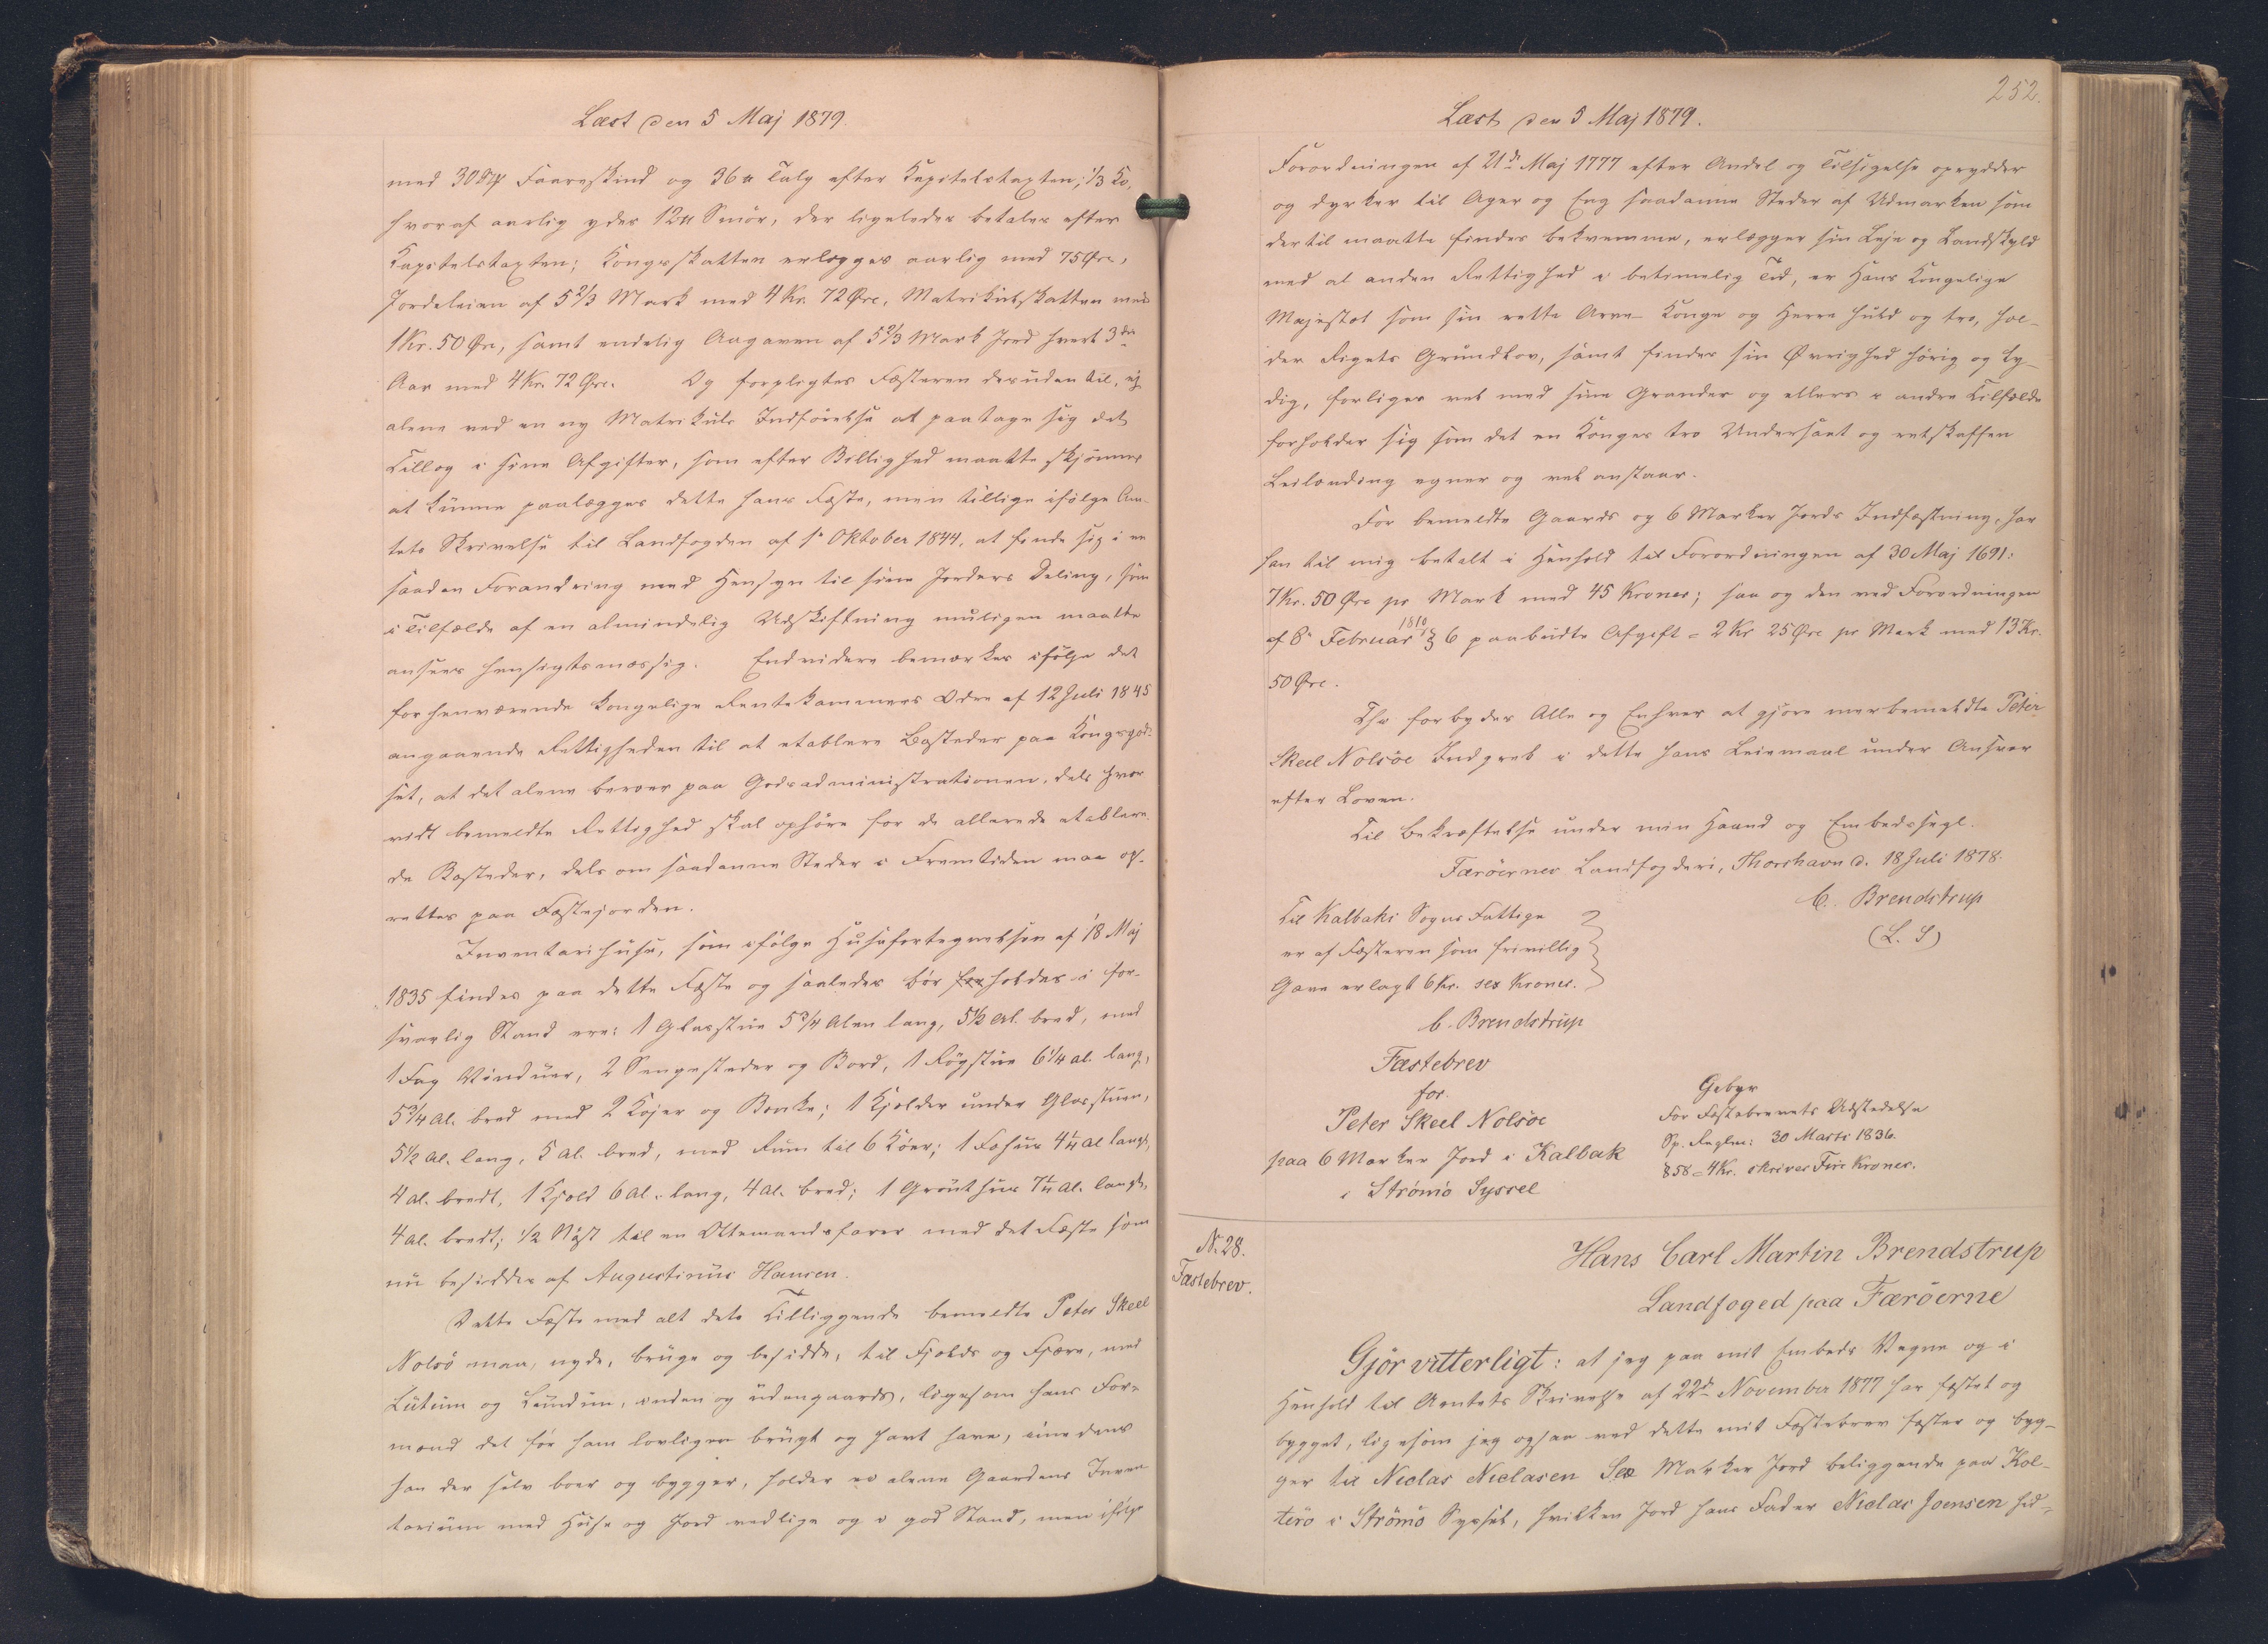 Læst den 5 Maj 1879.
med 30 Stk Faareskind og 36 ℔ Talg efter Kapitelstaxten; 1/3 Ko,
hvoraf aarlig ydes 12 ℔ Smör, der ligeledes betales efter
Kapitelstaxten; Kongsskatten erlægges aarlig med 75 Øre,
Jordeleien af 5 2/3 Mark med 4 Kr. 72 Øre, Matrikulskatten med
1 Kr. 50 Øre, samt endelig Aagaven af 5 2/3 Mark Jord hvert 3die
Aar med 4 Kr. 72 Øre. Og forpligtes Fæsteren desuden til, ej
alene ved en ny Matrikuls Indförelse at paatage sig det
Tillæg i sine Afgifter, som efter Billighed maatte skjönnes
at kunne paalægges dette hans Fæste, men tillige ifölge Am-
tets Skrivelse til Landfogden af 1ste Oktober 1844, at finde sig i en
saadan Forandring med Hensyn til sine Jorders Deling, som
i Tilfælde af en almindelig Udskiftning muligen maatte
ansees hensigtsmæssig. Endvidere bemærkes ifölge det
forhenværende kongelige Rentekammers Ordre af 12 Juli 1845
angaaende Rettigheden til at etablere Bosteder paa Kongsgod-
set, at det alene beroer paa Godsadministrationen, dels hvor
vidt bemeldte Rettighed skal ophöre for de allerede etablere-
de Bosteder, dels om saadanne Steder i Fremtiden maa op-
rettes paa Fæstejorden.
Inventarihuse, som ifölge Husefortegnelsen af 18 Maj
1835 findes paa dette Fæste og saaledes bör holdes i for-
svarlig Stand ere: 1 Glasstue 5 3/4 Alen lang, 5 1/2 Al. bred, med
1 Fag Vinduer, 2 Sengesteder og Bord, 1 Rögstue 6 1/4 al. lang,
5 3/4 al. bred med 2 Kojer og Bænke; 1 Kjelder under Glasstuen,
5 1/2 al. lang, 5 al. bred, med Rum til 6 Köer; 1 Fæhus 4 1/4 al langt,
4 al. bredt, 1 Kjold 6 al. lang, 4 al. bred; 1 Grouthus 7 1/4 al. langt,
4 al. bredt; 1/2 Nöst til en Ottemandsfarer med det Fæste som
nu besiddes af Augustinus Hansen.
Dette Fæste med alt dets Tilliggende bemeldte Peter Skeel
Nolsö maa, nyde, bruge og besidde, til Fjelds og Fjære, med
Lutum og Lundum, inden og udengaards, ligesom hans For-
mænd det för ham lovligen brugt og havt have, imedens
han der selv boer og bygger, holder ei alene Gaardens Inven
tarium med Huse og Jord vedlige og i god Stand, men ifölge
252.
Læst den 5 Maj 1879.
Forordningen af 21de Maj 1777 efter Andel og Tilsigelse oprydder
og dyrker til Ager og Eng saadanne Steder af Udmarken som
dertil maatte findes bekvemme, erlægger sin Leje og Landskyld
med al anden Rettighed i betimelig Tid, er Hans Kongelige
Majestæt som sin rette Arve-Konge og Herre huld og tro, hol-
der Rigets Grundlov, samt findes sin Øvrighed hörig og ly-
dig, forliges vel med sine Grander og ellers i andre Tilfælde
forholder sig som det en Konges tro Undersaat og retskaffen
Leilænding egner og vel anstaar.
For bemeldte Gaards og 6 Marker Jords Indfæstning, har
han til mig betalt i Henhold til Forordningen af 30 Maj 1691:
7 Kr. 50 Øre pr Mark med 45 Kroner; saa og den ved Forordningen
af 8de Februar 1810 § 6 paabudte Afgift = 2 Kr 25 Øre pr Mark med 13 Kr.
50 Øre.
Thi forbydes Alle og Enhver at gjöre merbemeldte Peter
Skeel Nolsöe Indgreb i dette hans Leiemaal under Ansvar
efter Loven.
Til Bekræftelse under min Haand og Embedssegl.
Færöernes Landfogderi, Thorshavn d. 18 Juli 1878.
C. Brendstrup
(L. S)
Til Kalbaks Sogns Fattige
er af Fæsteren som frivillig
Gave erlagt 6 Kr. sex Kroner.
C. Brendstrup
Fæstebrev
for
Peter Skeel Nolsöe
paa 6 Marker Jord i Kalbak
i Strömö Syssel
Gebyr
For Fæstebrevets Udstedelse
Sp. Reglm: 30 Marts 1836.
§ 58 = 4 Kr. skriver Fire Kroner.
N. 28.
Fæstebrev.
Hans Carl Martin Brendstrup
Landfoged paa Færöerne
Gjör vitterligt: at jeg paa mit Embeds Vegne og i
Henhold til Amtets Skrivelse af 22de November 1877 har fæstet og
bygget, ligesom jeg ogsaa ved dette mit Fæstebrev fæster og byg-
ger til Niclas Niclasen Sex Marker Jord beliggende paa Kol-
terö i Strömö Syssel, hvilken Jord hans Fader Niclas Joensen hid-